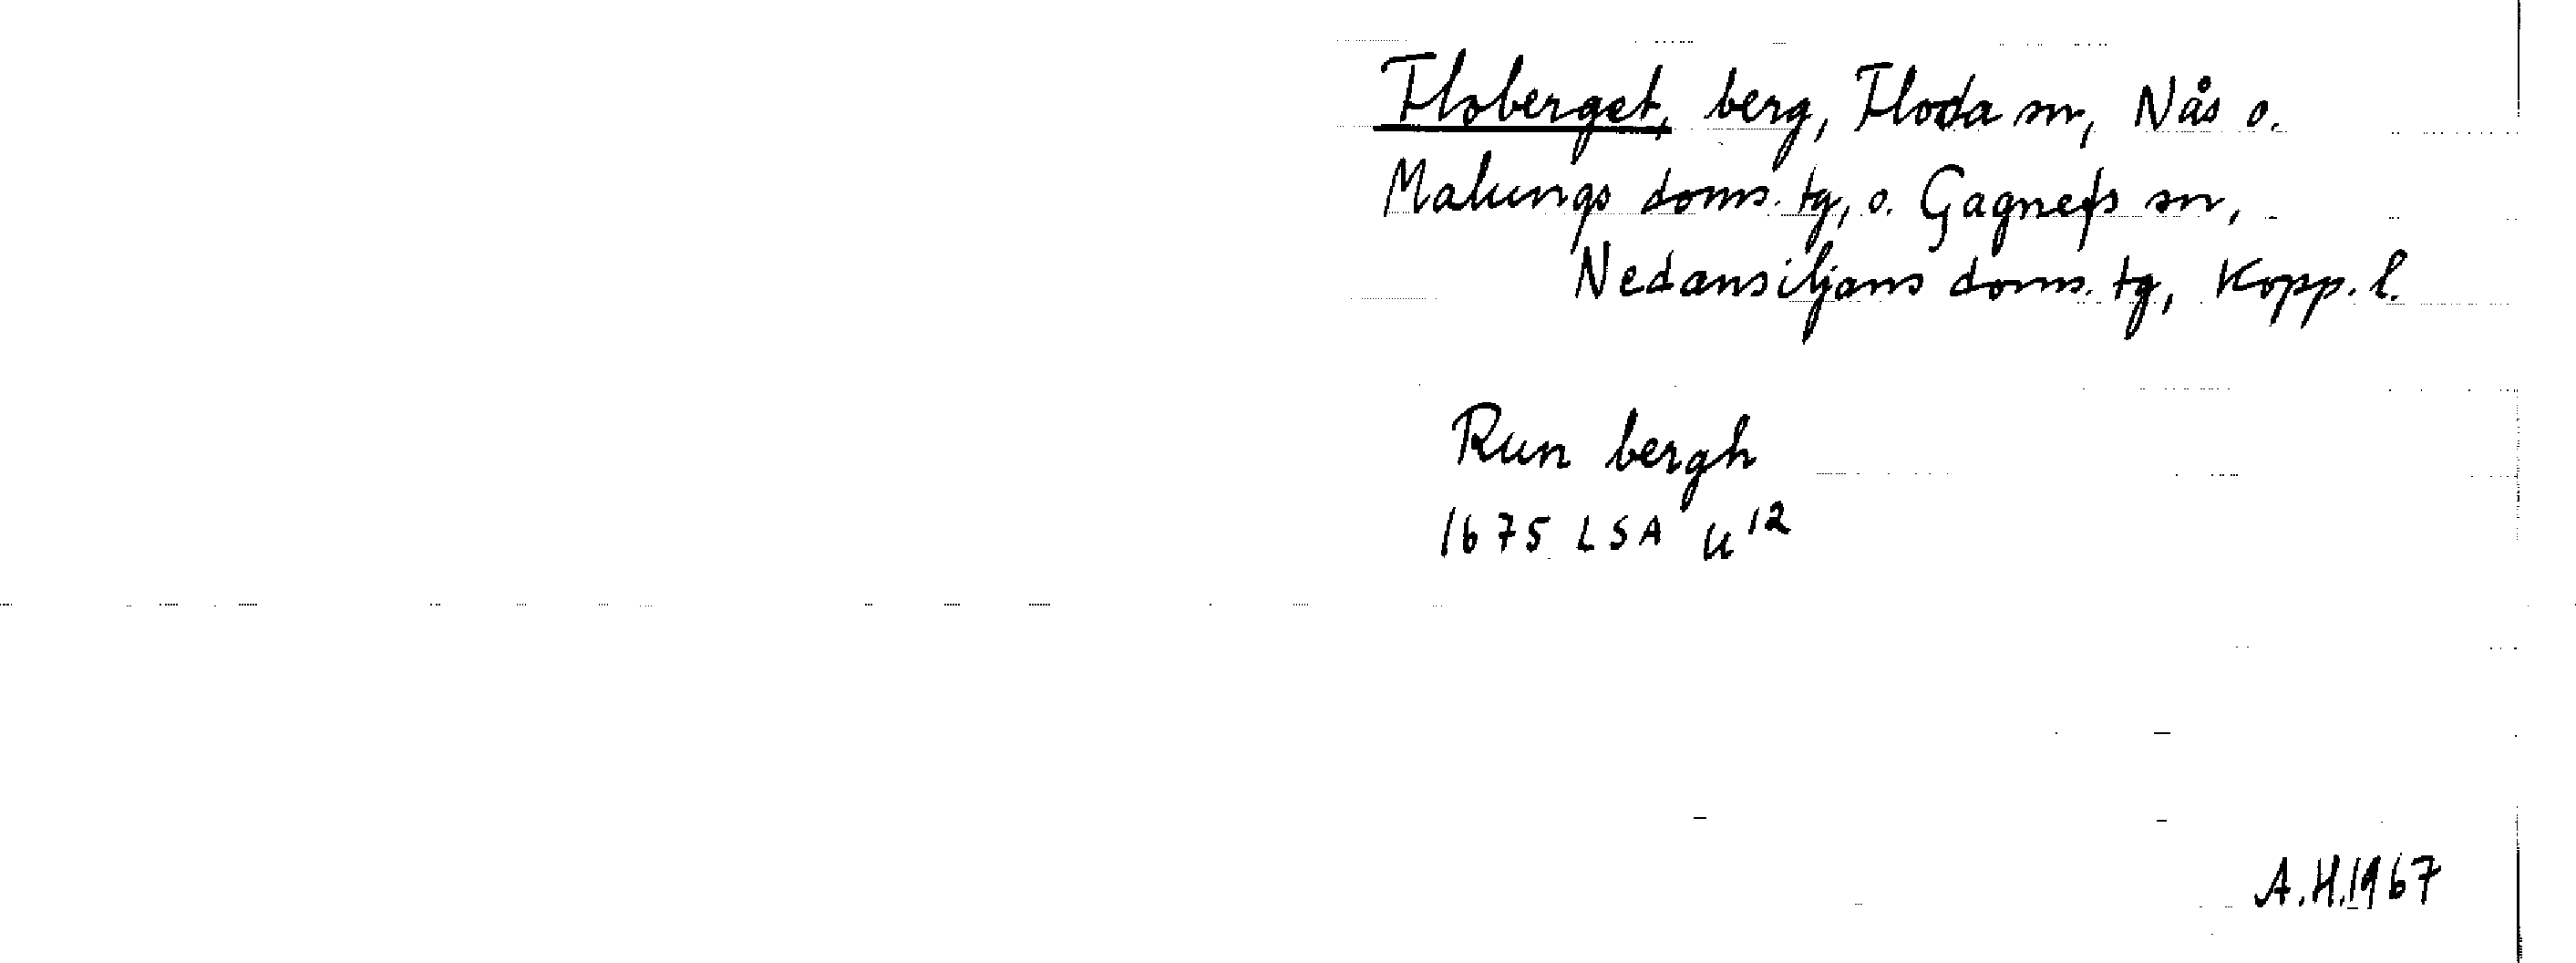 Floberget, berg, Floda sn, Nås o.
Malungs doms. tg, o. Gagnefs sn,
Nedansiljans doms. tg, Kopp. l.
Run bergh
1675 LSA U 12
A.H.1967